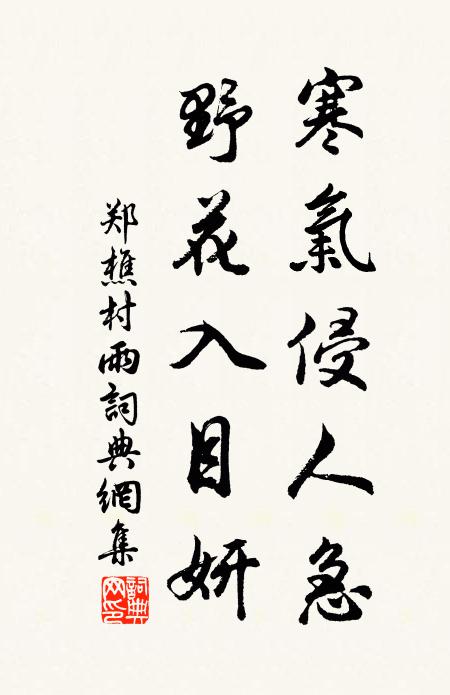 寒氣侵人急
野花入目妍
郑樵村雨詞典網集
詞典网印